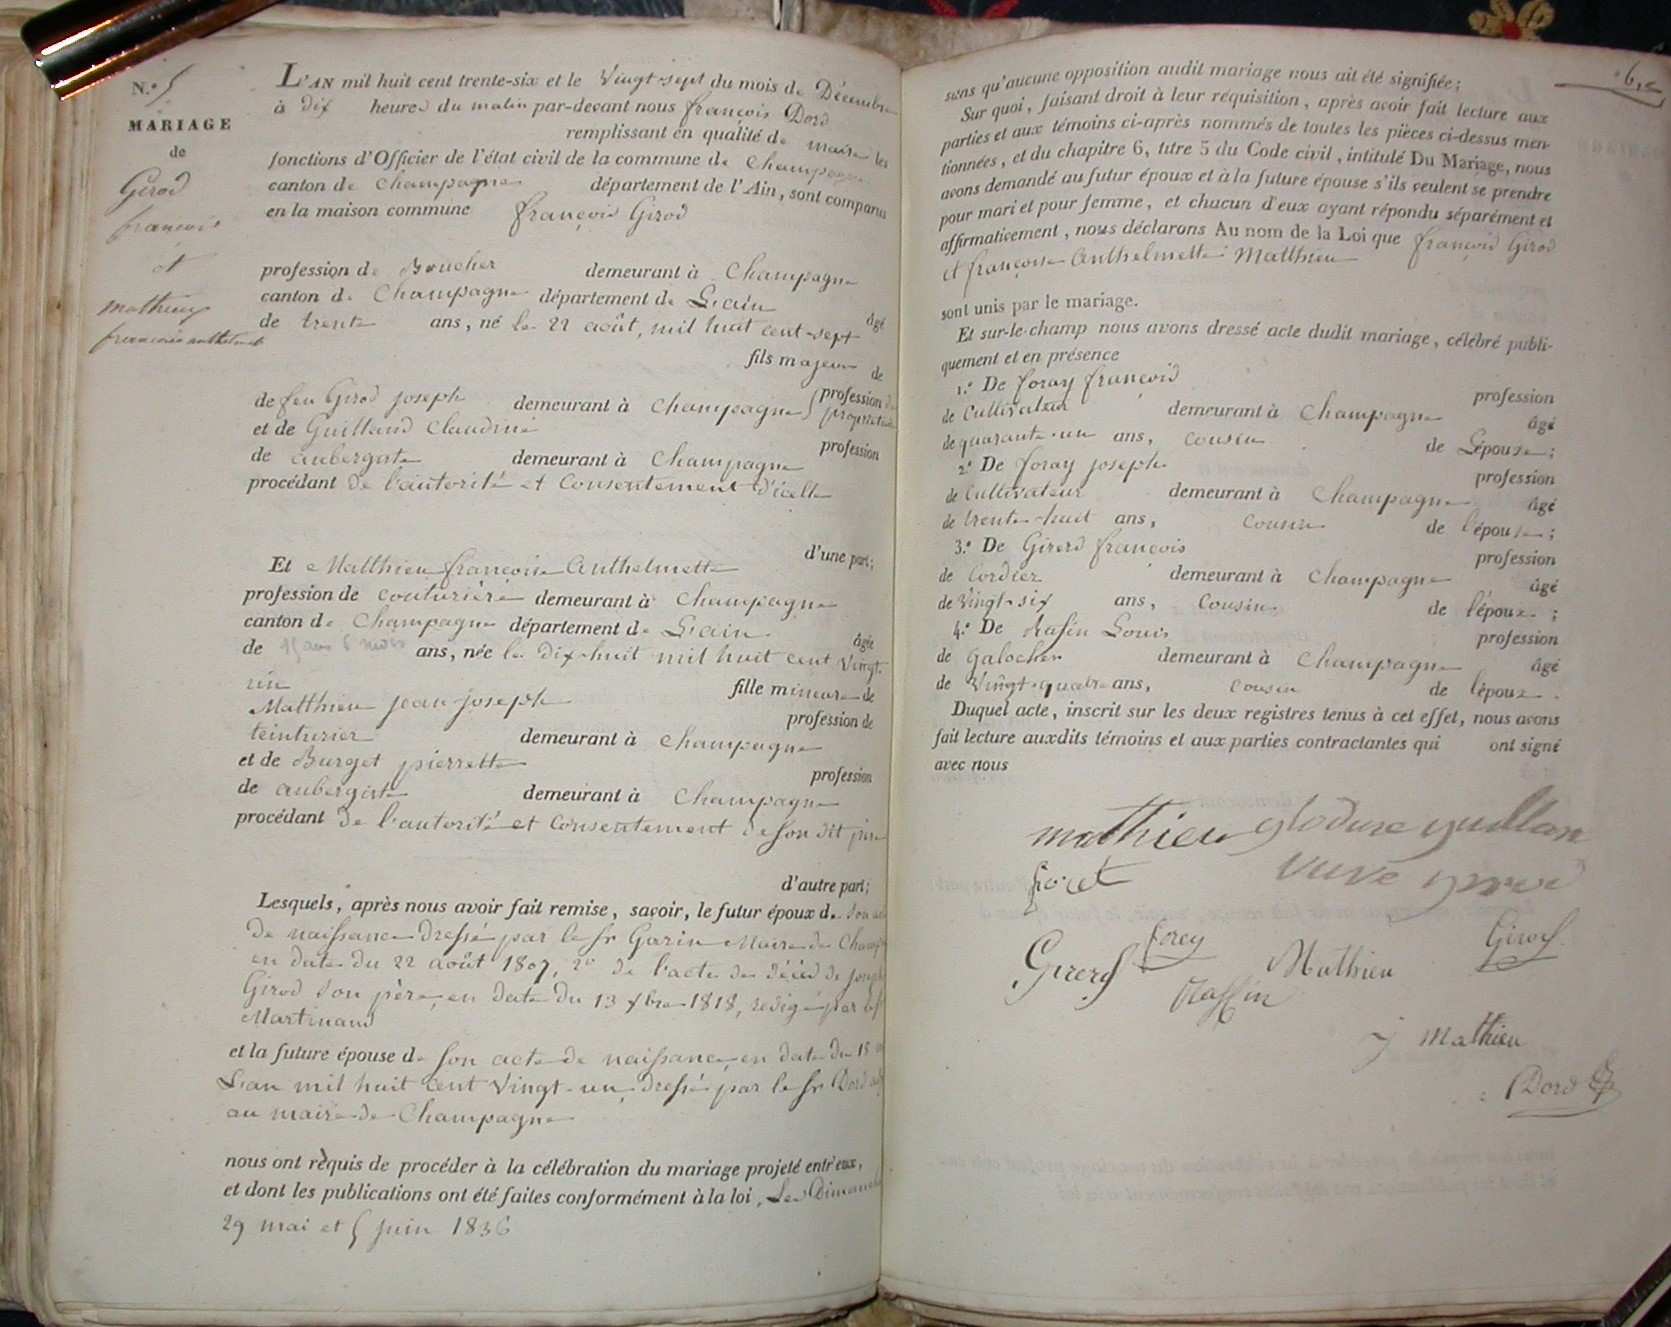 N.° 5
MARIAGE
de
Girod
françois
et
mathieu
françoise anthelmette
L'AN mil huit cent trente-six et le Vingt-sept du mois de Décembre
à dix heures du matin par-devant nous françois Dord
remplissant en qualité de maire les
fonctions d'Officier de l'état civil de la commune de Champagne
canton de Champagne département de l'Ain, sont comparus
en la maison commune françois Girod
profession de Boucher demeurant à Champagne
canton de Champagne département de L'ain
âgé
de trente ans, né le 22 août, mil huit cent sept
fils majeur de
de feu Girod joseph demeurant à Champagne profession de
propriétaire
et de Guilland Claudine
profession
de aubergiste demeurant à Champagne
procédant de l'autorité et Consentement d'icelle
d'une part;
Et Matthieu françoise Anthelmette
profession de couturière demeurant à Champagne
canton de Champagne département de L'ain
âgée
de 15 ans 6 mois ans, née le dix-huit mil huit cent vingt-
un
fille mineure de
Matthieu jean-joseph
profession de
teinturier demeurant à Champagne
et de Burget pierrette
profession
de aubergiste demeurant à Champagne
procédant de l'autorité et consentement de son dit père
d'autre part;
Lesquels, après nous avoir fait remise, savoir, le futur époux de son
de naissance dressé par le Sr Garin Maire de Champ
en date du 22 août 1807, 2° de l'acte de décès de joseph
Girod son père, en date du 13 xbre 1818, redigé par
Martinand
et la future épouse de son acte de naissance, en date du 18
L'an mil huit cent vingt-un, dressé par le Sr Dord
au maire de Champagne
nous ont requis de procéder à la célébration du mariage projeté entr'eux,
et dont les publications ont été faites conformément à la loi, Les Dimanche
29 mai et 5 juin 1836
sans qu'aucune opposition audit mariage nous ait été signifiée;
Sur quoi, faisant droit à leur réquisition, après avoir fait lecture aux
parties et aux témoins ci-après nommés de toutes les pièces ci-dessus men-
tionnées, et du chapitre 6, titre 5 du Code civil, intitulé Du Mariage, nous
avons demandé au futur époux et à la future épouse s'ils veulent se prendre
pour mari et pour femme, et chacun d'eux ayant répondu séparément et
affirmativement, nous déclarons Au nom de la Loi que françois Girod
et françoise Anthelmette Matthieu
sont unis par le mariage.
Et sur-le-champ nous avons dressé acte dudit mariage, célébré publi-
quement et en présence
1.° De foray françois
profession
de Cultivateur demeurant à Champagne
âgé
de quarante-un ans, cousin de L'épouse;
2.° De foray joseph
profession
de Cultivateur demeurant à Champagne
âgé
de trente-huit ans, cousin de l'épouse;
3.° De Girerd françois
profession
de Cordier demeurant à Champagne
âgé
de Vingt-six ans, Cousin de l'époux;
4.° De Rafin Louis
profession
de Galocher demeurant à Champagne
âgé
de Vingt-quatre ans, cousin de l'époux.
Duquel acte, inscrit sur les deux registres tenus à cet effet, nous avons
fait lecture auxdits témoins et aux parties contractantes qui ont signé
avec nous
mathieu glodine guillan
foret veuve
forey Girod
Girerd Mathieu
Raffin
j Mathieu
Dord